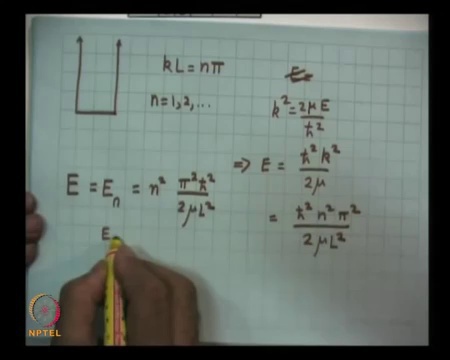 kL = nπ
n = 1, 2, ...
E
k² = 2μE / ħ²
⇒ E = ħ²k² / 2μ
= ħ² n² π² / 2μL²
E = Eₙ = n² π²ħ² / 2μL²
E
NPTEL